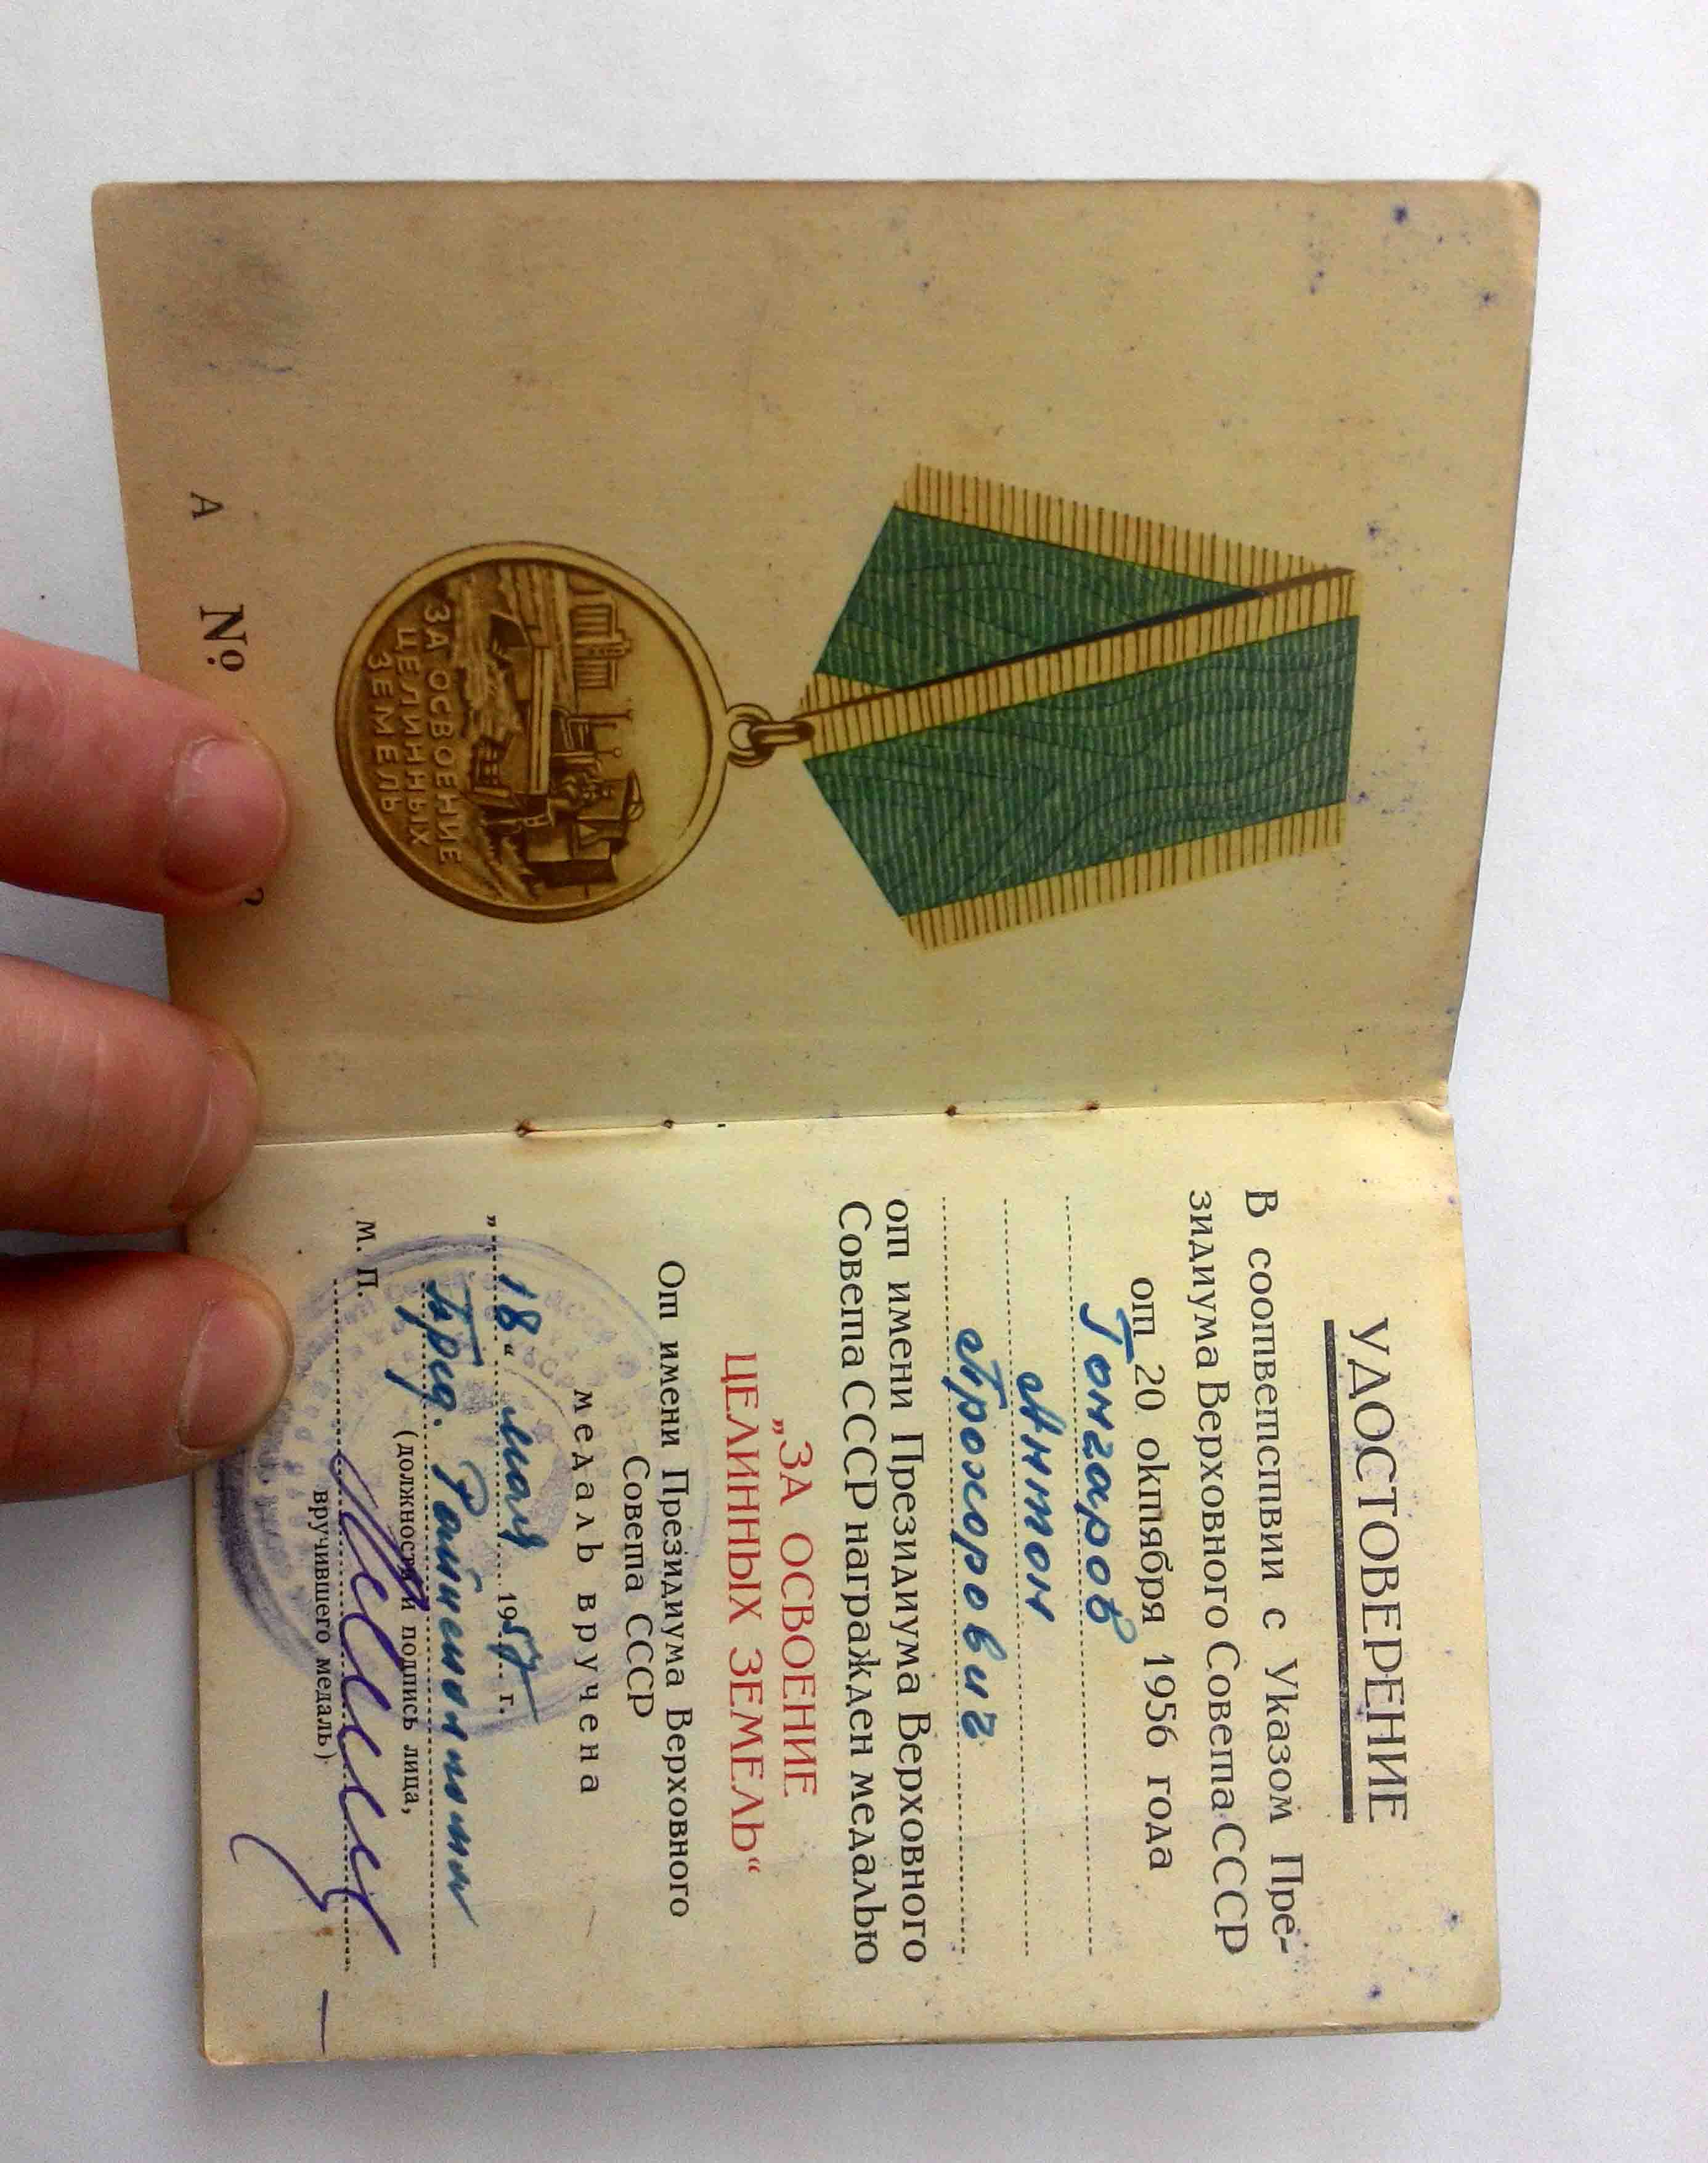 ЗА ОСВОЕНИЕ
ЦЕЛИННЫХ
ЗЕМЕЛЬ
А №
УДОСТОВЕРЕНИЕ
В соответствии с Указом Пре-
зидиума Верховного Совета СССР
от 20 октября 1956 года
Гончаров
Антон
Прохорович
от имени Президиума Верховного
Совета СССР награжден медалью
„ЗА ОСВОЕНИЕ
ЦЕЛИННЫХ ЗЕМЕЛЬ“
От имени Президиума Верховного
Совета СССР
медаль вручена
„18“ мая 1957 г.
Пред.
(должность и подпись лица,
М. П.
вручившего медаль)